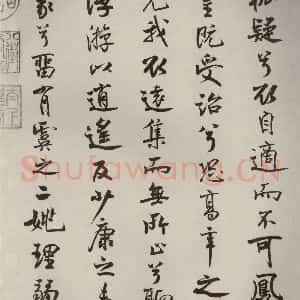 狐疑兮欲自適而不可鳳
皇既受詒兮恐高辛之
先我欲遠集而無所止兮聊
浮游以逍遙及少康之未
家兮留有虞之二姚理弱
Shufawang.CN